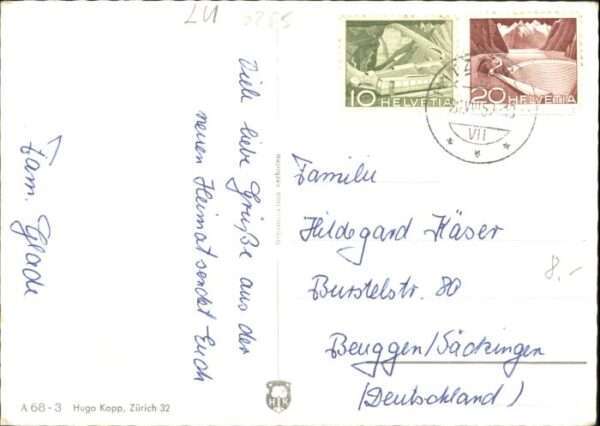 LU
10 HELVETIA
20 HELVETIA
VII
Viele liebe Grüße aus der
neuen Heimat sendet Euch
Fam. Glade
Familie
Hildegard Käser
Burstelstr. 80
Beuggen/Säckingen
(Deutschland)
8.-
A 68-3 Hugo Kopp, Zürich 32
HKZ